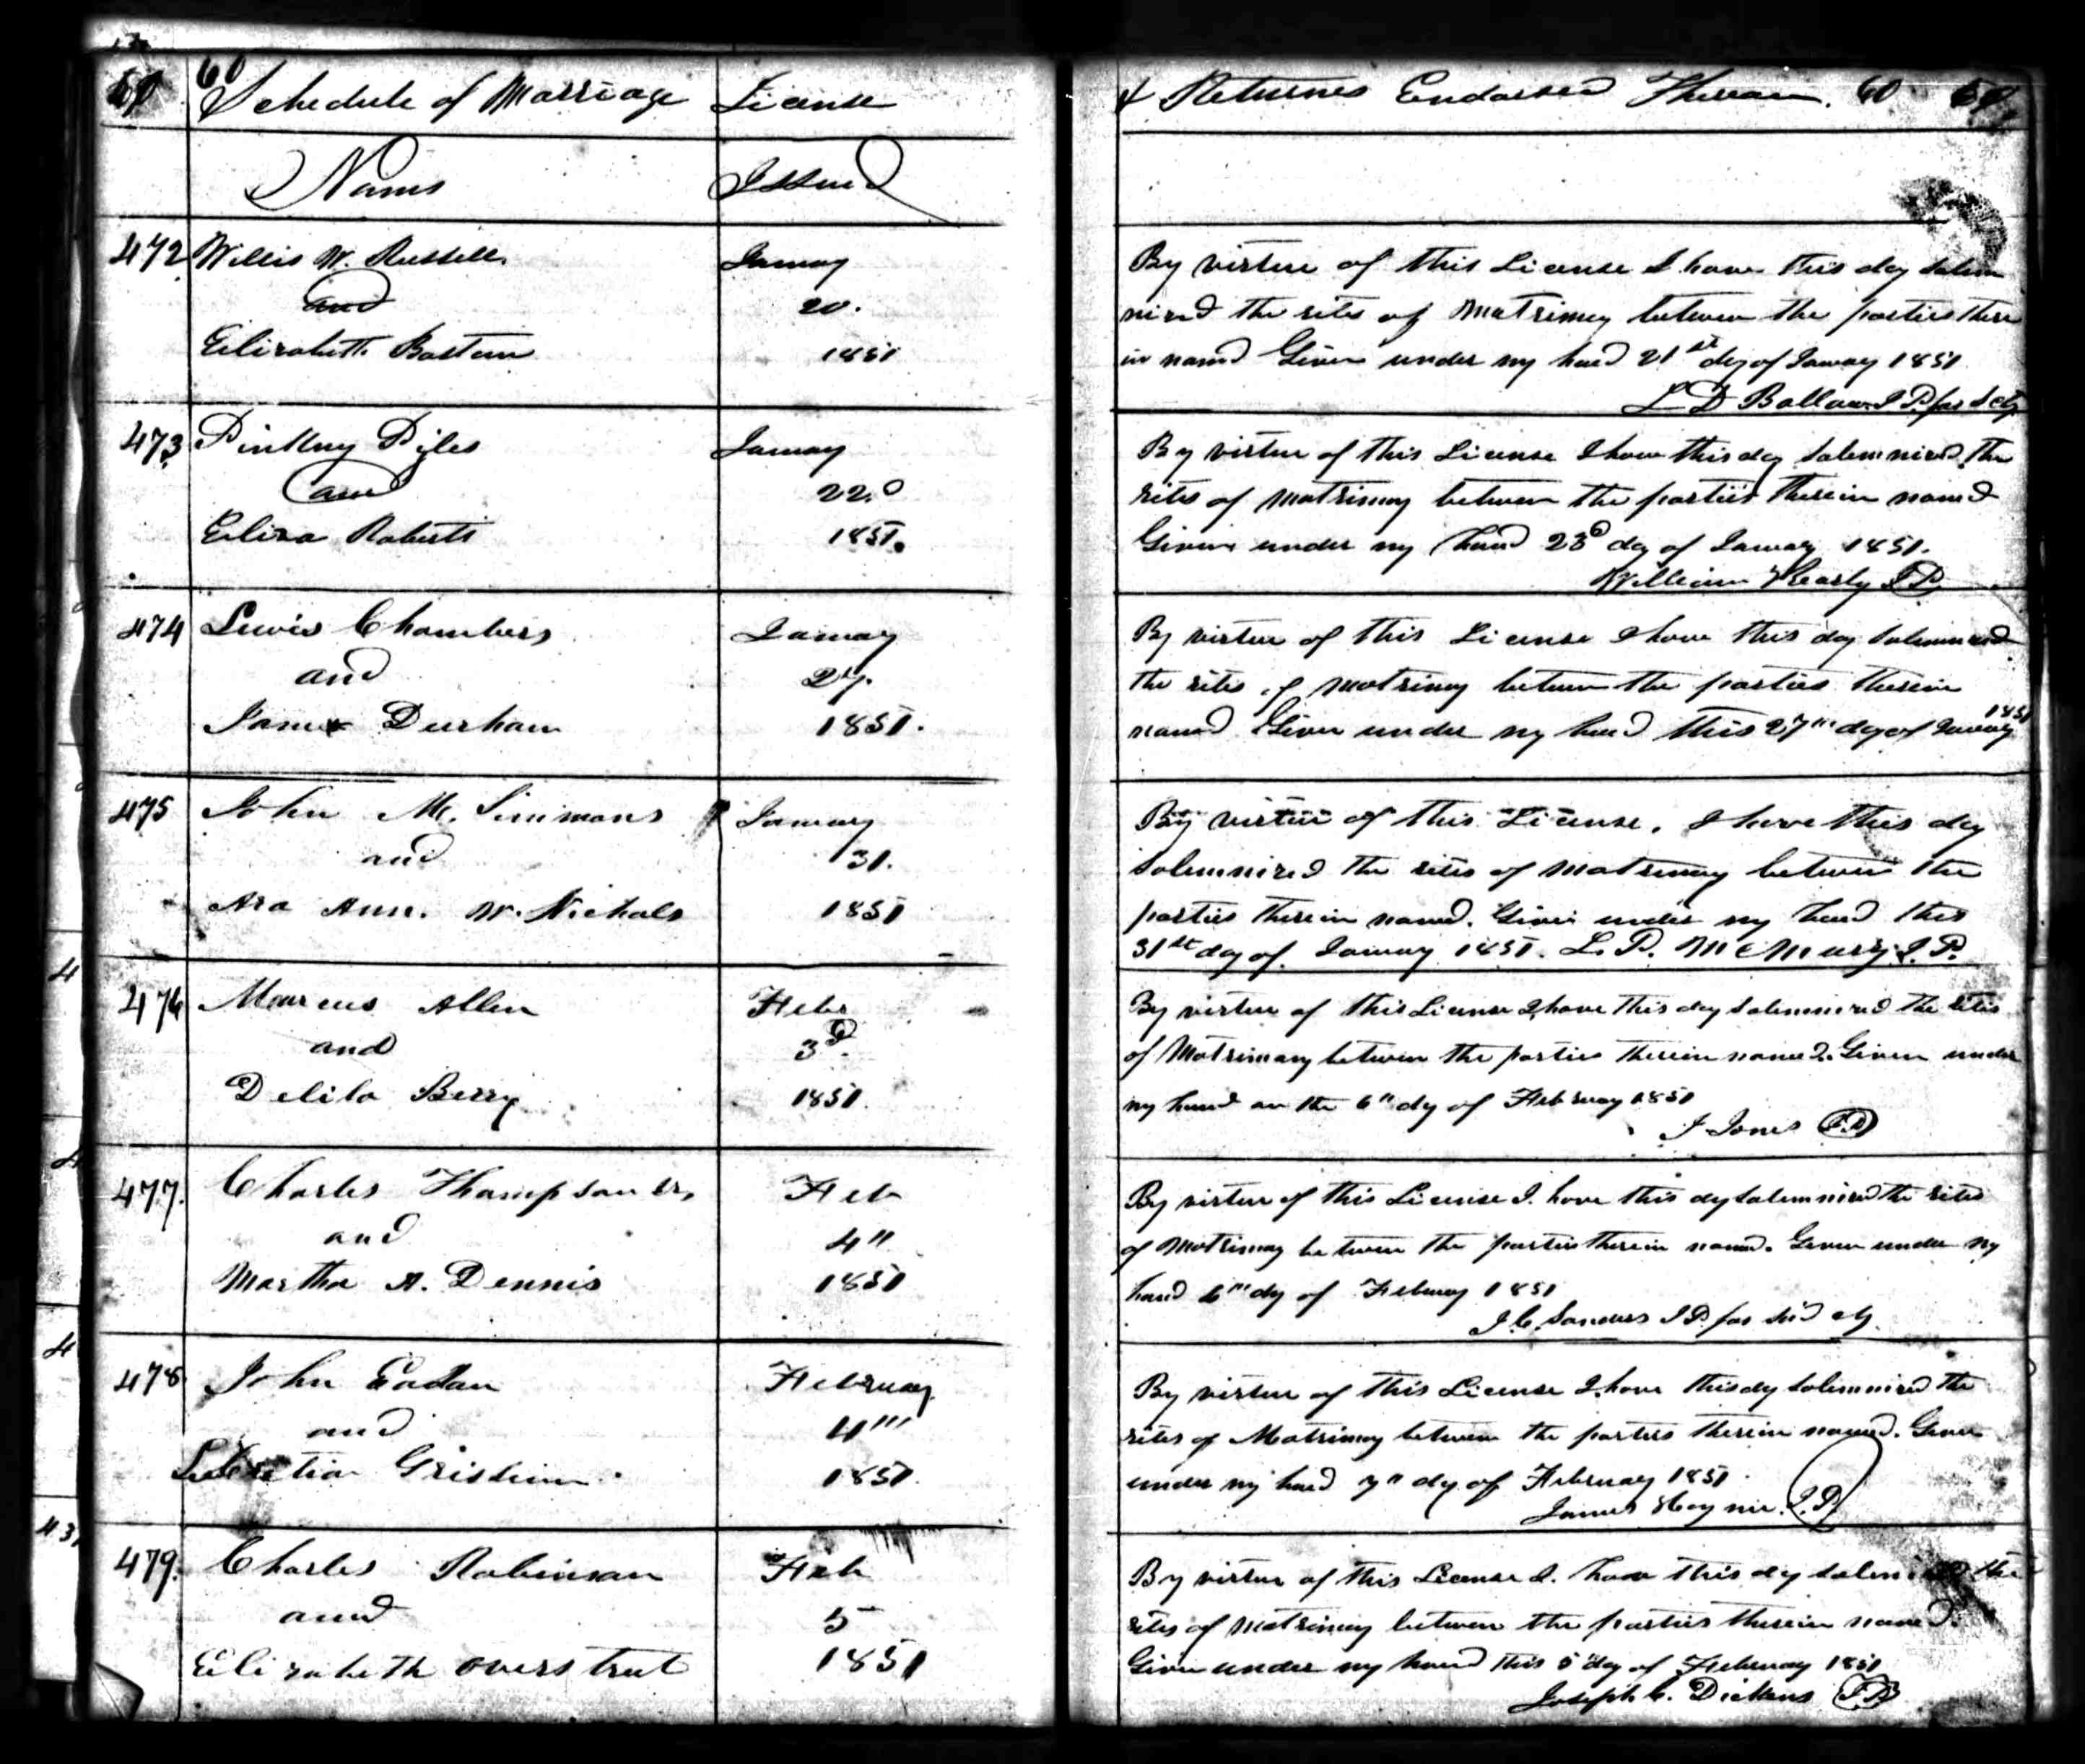 60
Schedule of Marriage License
Names Issued
472 Willis W. Russell January
and 20.
Elizabeth Bastern 1851
473 Pinkny Pyles January
and 22d
Eliza Roberts 1851.
474 Lewis Chambers January
and 27.
Durham 1851.
475 John M. Simmons January
and 31.
Ara Ann. W. Nichols 1851
476 Marcus Allen Feb
and 3d.
Delila Berry 1851.
477. Charles Thompson Feb
and 4"
Martha A. Dennis 1851
478 John February
and 4"
1851.
479. Charles Robinson Feb
and 5
Elizabeth Overstreet 1851
& Returnes Endorsed Thereon. 60
By virtue of this License I have this day solem
nized the rites of Matrimony between the parties there
in named Given under my hand 21st day of January 1851
L D Ballow J P for s cty
By virtue of this License I have this day solemnized the
rites of matrimony between the parties therein named
Given under my hand 23d day of January 1851.
William J P
By virtue of this License I have this day solemnized
the rites of matrimony between the parties therein
named Given under my hand this 27th day of January 1851
By virtue of this License, I have this day
solemnized the rites of matrimony between the
parties therein named. Given under my hand this
31st day of January 1851. L. P. McMurry J. P.
By virtue of this License I have this day solemnized the rites
of Matrimony between the parties therein named. Given under
my hand on the 6th day of February 1851
J Jones J.P
By virtue of this License I. have this dy solemnized the rites
of Matrimony between the parties therein named. Given under my
hand 6th dy of February 1851
J. C. Sanders J P for sd cty.
By virtue of this License I have this dy solemnized the
rites of Matrimony between the parties therein named. Given
under my hand 7th dy of February 1851
James Haynie. J.P.
By virtue of this License I. have this dy the
rites of matrimony between the parties therein named.
Given under my hand this 5 day of February 1851
Joseph C. Dickens J.P.